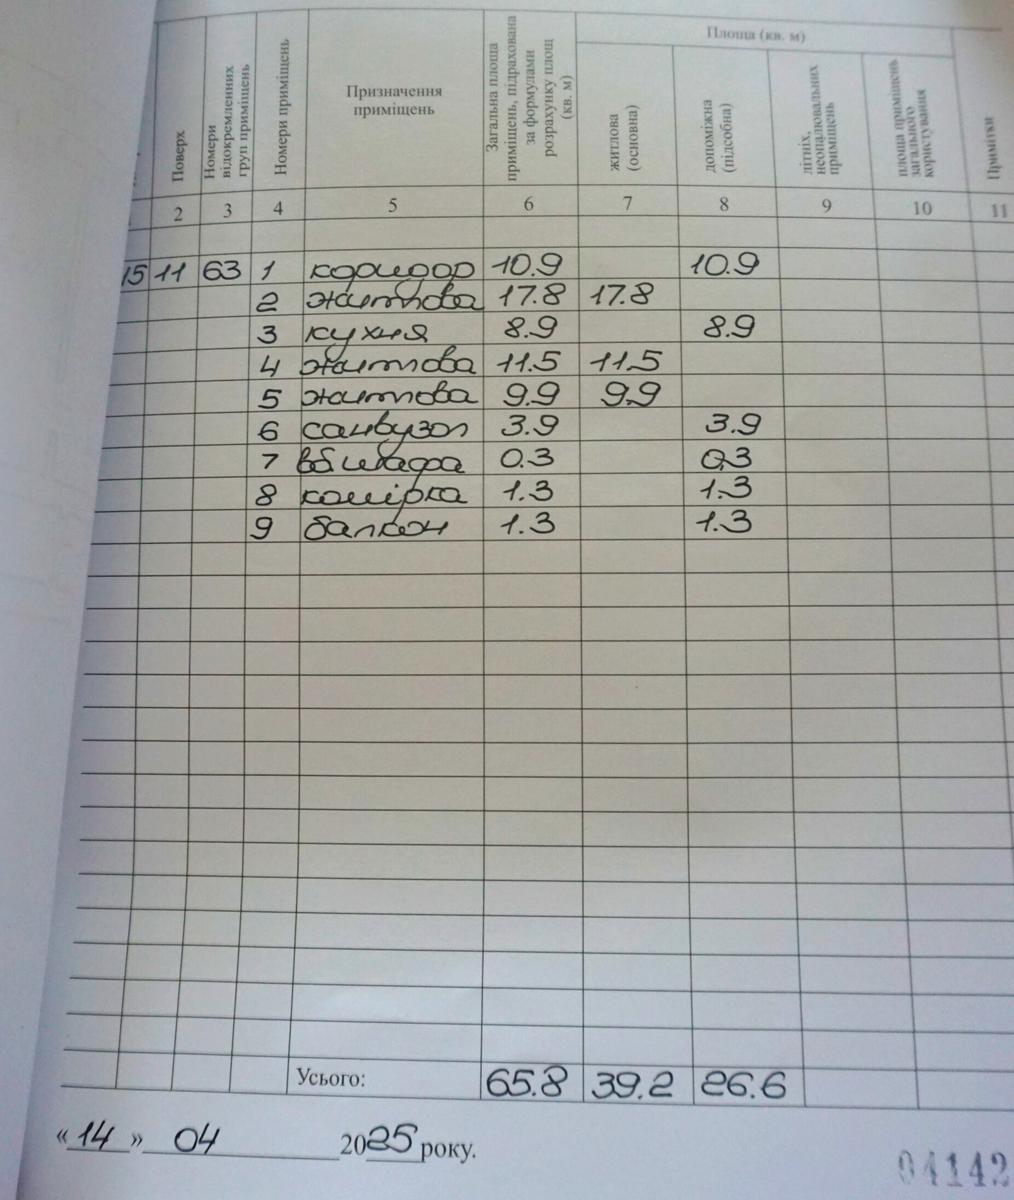 Поверх
Номери відокремленних груп приміщень
Номери приміщень
Призначення приміщень
Загальна площа приміщень, підрахована за формулами розрахунку площ (кв. м)
Площа (кв. м)
житлова (основна)
допоміжна (підсобна)
літніх, неопалювальних приміщень
площа приміщень загального користування
Примітки
2 3 4 5 6 7 8 9 10 11
15 11 63 1 коридор 10.9 10.9
2 житлова 17.8 17.8
3 кухня 8.9 8.9
4 житлова 11.5 11.5
5 житлова 9.9 9.9
6 санвузол 3.9 3.9
7 вб шафа 0.3 0.3
8 комірка 1.3 1.3
9 балкон 1.3 1.3
Усього: 65.8 39.2 26.6
«14» 04 2025 року.
04142